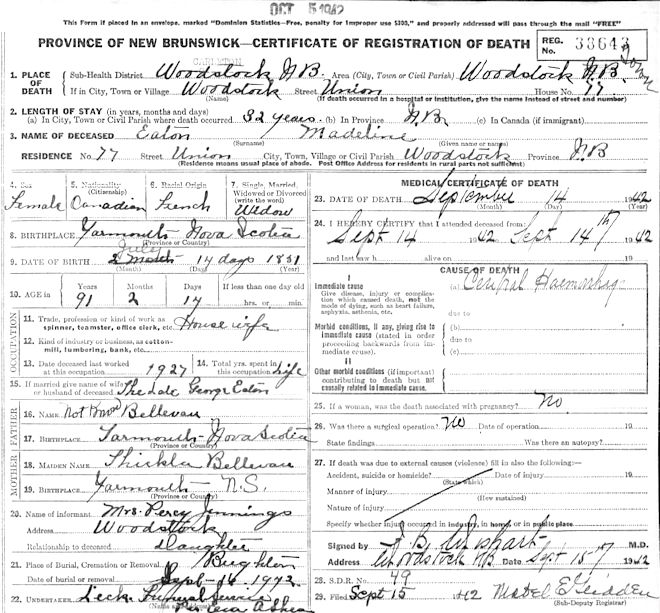 OCT 5 1942
This Form if placed in an envelope, marked "Dominion Statistics—Free, penalty for improper use $300," and properly addressed will pass through the mail "FREE"
PROVINCE OF NEW BRUNSWICK—CERTIFICATE OF REGISTRATION OF DEATH
REG. No. 33643
CARLETON
1. PLACE OF DEATH
Sub-Health District Woodstock N.B. Area (City, Town or Civil Parish) Woodstock N.B.
If in City, Town or Village Woodstock Street Union House No. 77
(Name) (If death occurred in a hospital or institution, give the name instead of street and number)
2. LENGTH OF STAY (in years, months and days)
(a) In City, Town or Civil Parish where death occurred 32 years. (b) In Province N.B. (c) In Canada (if immigrant)
3. NAME OF DECEASED Eaton Madeline
(Surname) (Given name or names)
RESIDENCE No. 77 Street Union City, Town, Village or Civil Parish Woodstock Province N.B
(Residence means usual place of abode. Post Office Address for residents in rural parts not sufficient)
4. Sex Female
5. Nationality (Citizenship) Canadian
6. Racial Origin French
7. Single, Married, Widowed or Divorced (write the word) Widow
8. BIRTHPLACE Yarmouth Nova Scotia
(Province or Country)
9. DATE OF BIRTH 14 days
(Month) (Day) (Year)
10. AGE in
Years Months Days If less than one day old
91 2 14 hrs. or min.
OCCUPATION
11. Trade, profession or kind of work as spinner, teamster, office clerk, etc. House wife
12. Kind of industry or business, as cotton-mill, lumbering, bank, etc.
13. Date deceased last worked at this occupation 1927
14. Total yrs. spent in this occupation life
15. If married give name of wife or husband of deceased The late George Eaton
FATHER
16. NAME Not known Bellevau
17. BIRTHPLACE Yarmouth Nova Scotia
(Province or Country)
MOTHER
18. MAIDEN NAME Bellevau
19. BIRTHPLACE Yarmouth N.S.
(Province or Country)
20. Name of informant Mrs. Percy Jennings
Address Woodstock
Relationship to deceased Daughter
21. Place of Burial, Cremation or Removal Brighton
Date of burial or removal Sept 16 1942
22. UNDERTAKER Funeral Service
MEDICAL CERTIFICATE OF DEATH
23. DATE OF DEATH September 14 1942
(Month) (Day) (Year)
24. I HEREBY CERTIFY that I attended deceased from:
Sept 14 1942 Sept 14th 1942
and last saw h alive on 19
CAUSE OF DEATH
I
Immediate cause
Give disease, injury or complication which caused death, not the mode of dying, such as heart failure, asphyxia, asthenia, etc.
(a) Cerebral Haemorrhage
due to
Morbid conditions, if any, giving rise to immediate cause (stated in order proceeding backwards from immediate cause).
(b)
due to
(c)
II
Other morbid conditions (if important) contributing to death but not causally related to immediate cause.
25. If a woman, was the death associated with pregnancy? No
26. Was there a surgical operation? No Date of operation 19
State findings Was there an autopsy?
27. If death was due to external causes (violence) fill in also the following:—
Accident, suicide or homicide? Date of injury 19
(State which)
Manner of injury
(How sustained)
Nature of injury
Specify whether injury occurred in industry, in home, or in public place
Signed by M.D.
Address Woodstock NB Date Sept 15th 1942
28. S.D.R. No. 49
29. Filed Sept 15 1942 Mabel E Glidden
(Sub-Deputy Registrar)